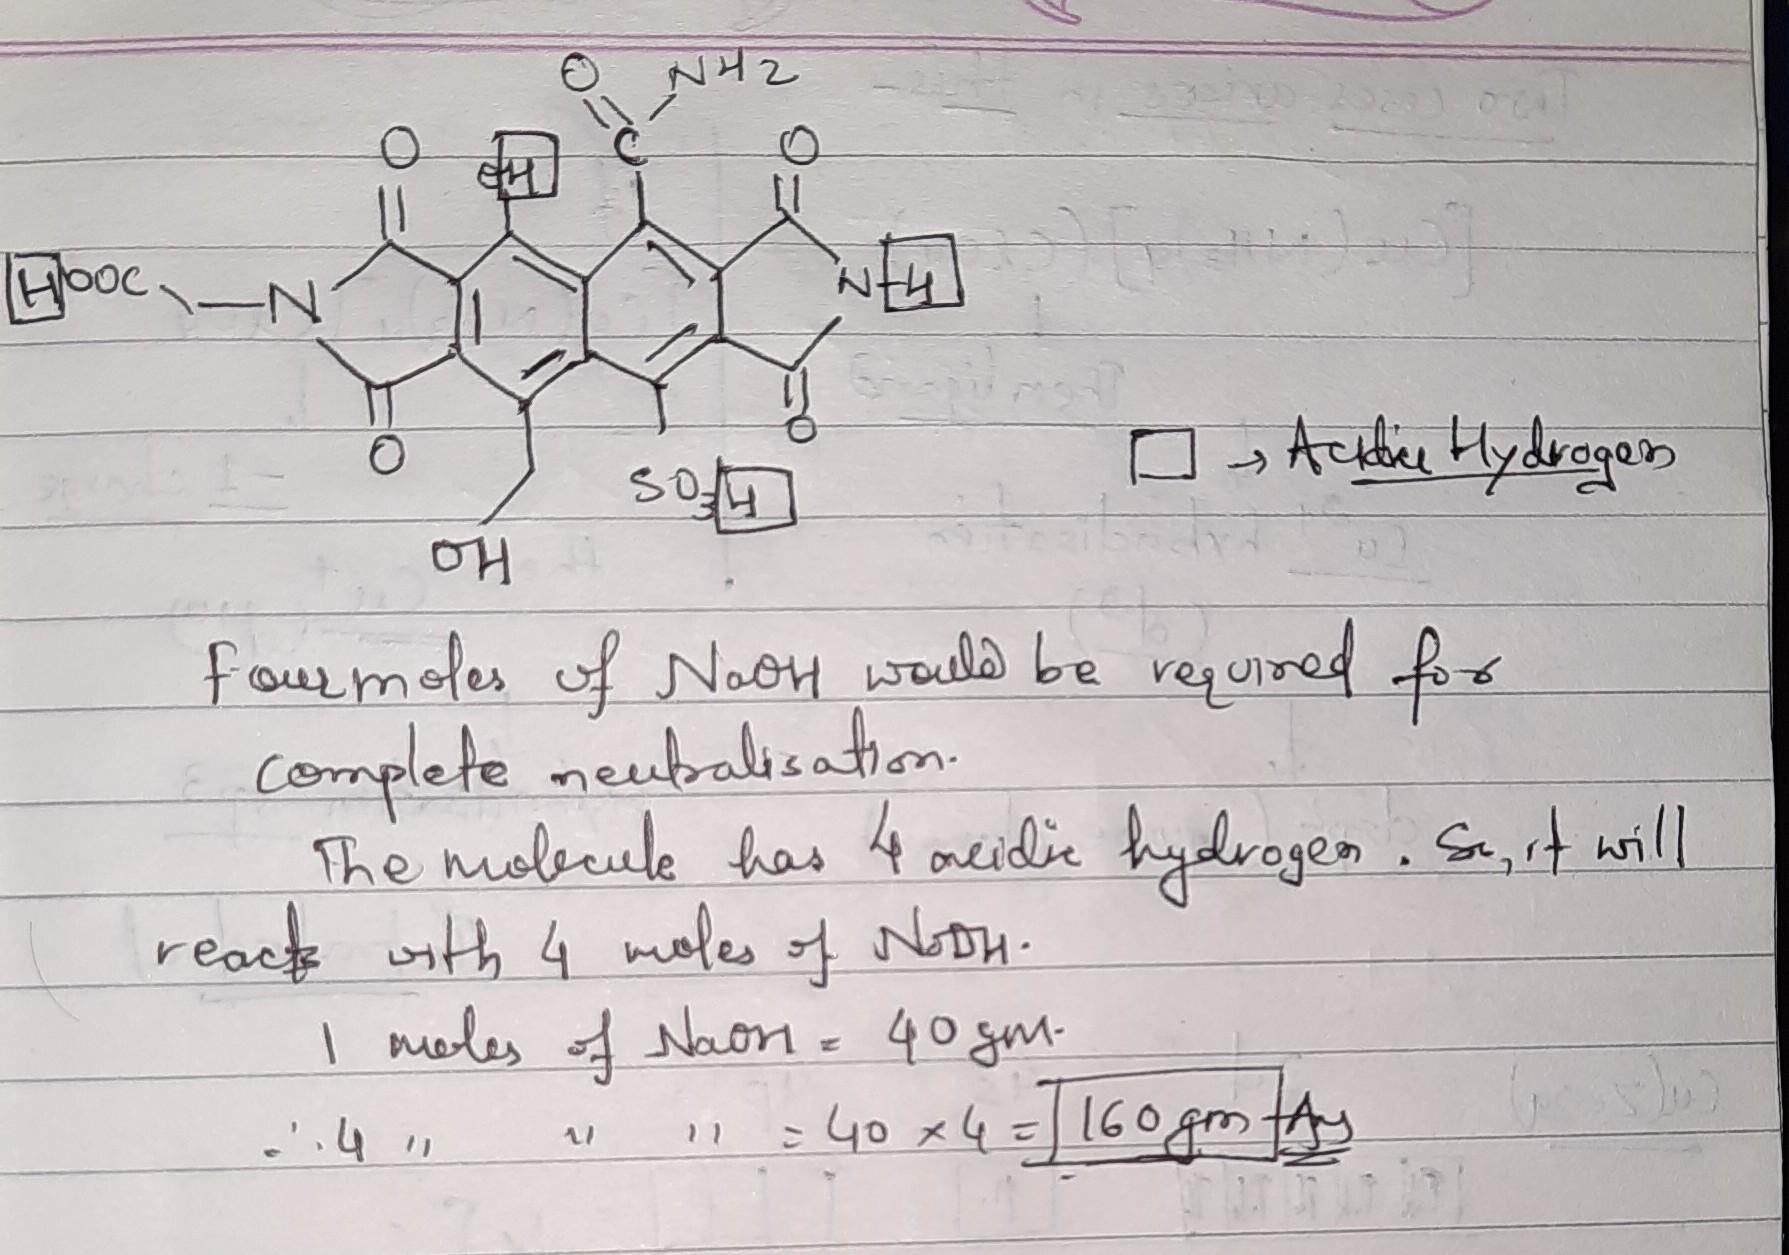 O NH2
C
O OH O
HOOC N N-H
O O
SO3H
OH
□ → Acidic Hydrogen
Four moles of NaOH would be required for
complete neutralisation.
The molecule has 4 acidic hydrogen. So, it will
reacts with 4 moles of NaOH.
1 moles of NaOH = 40 gm.
∴ 4 " " " = 40 × 4 = 160 gm Ans